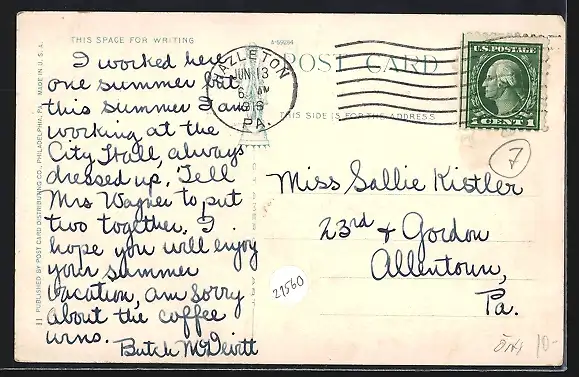 THIS SPACE FOR WRITING
A-59284
POST CARD
THIS SIDE IS FOR THE ADDRESS
MADE IN U.S.A.
11 PUBLISHED BY POST CARD DISTRIBUTING CO., PHILADELPHIA, PA.
HAZLETON
JUN 13
6 AM
1916
PA.
U.S. POSTAGE
1 CENT 1
7
I worked here
one summer but
this summer I am
working at the
City Hall, always
dressed up. Tell
Mrs Wagner to put
two together. I
hope you will enjoy
your summer
vacation, am sorry
about the coffee
urns.
Butch McDevitt
Miss Sallie Kistler
23rd & Gordon
Allentown,
Pa.
21560
10-